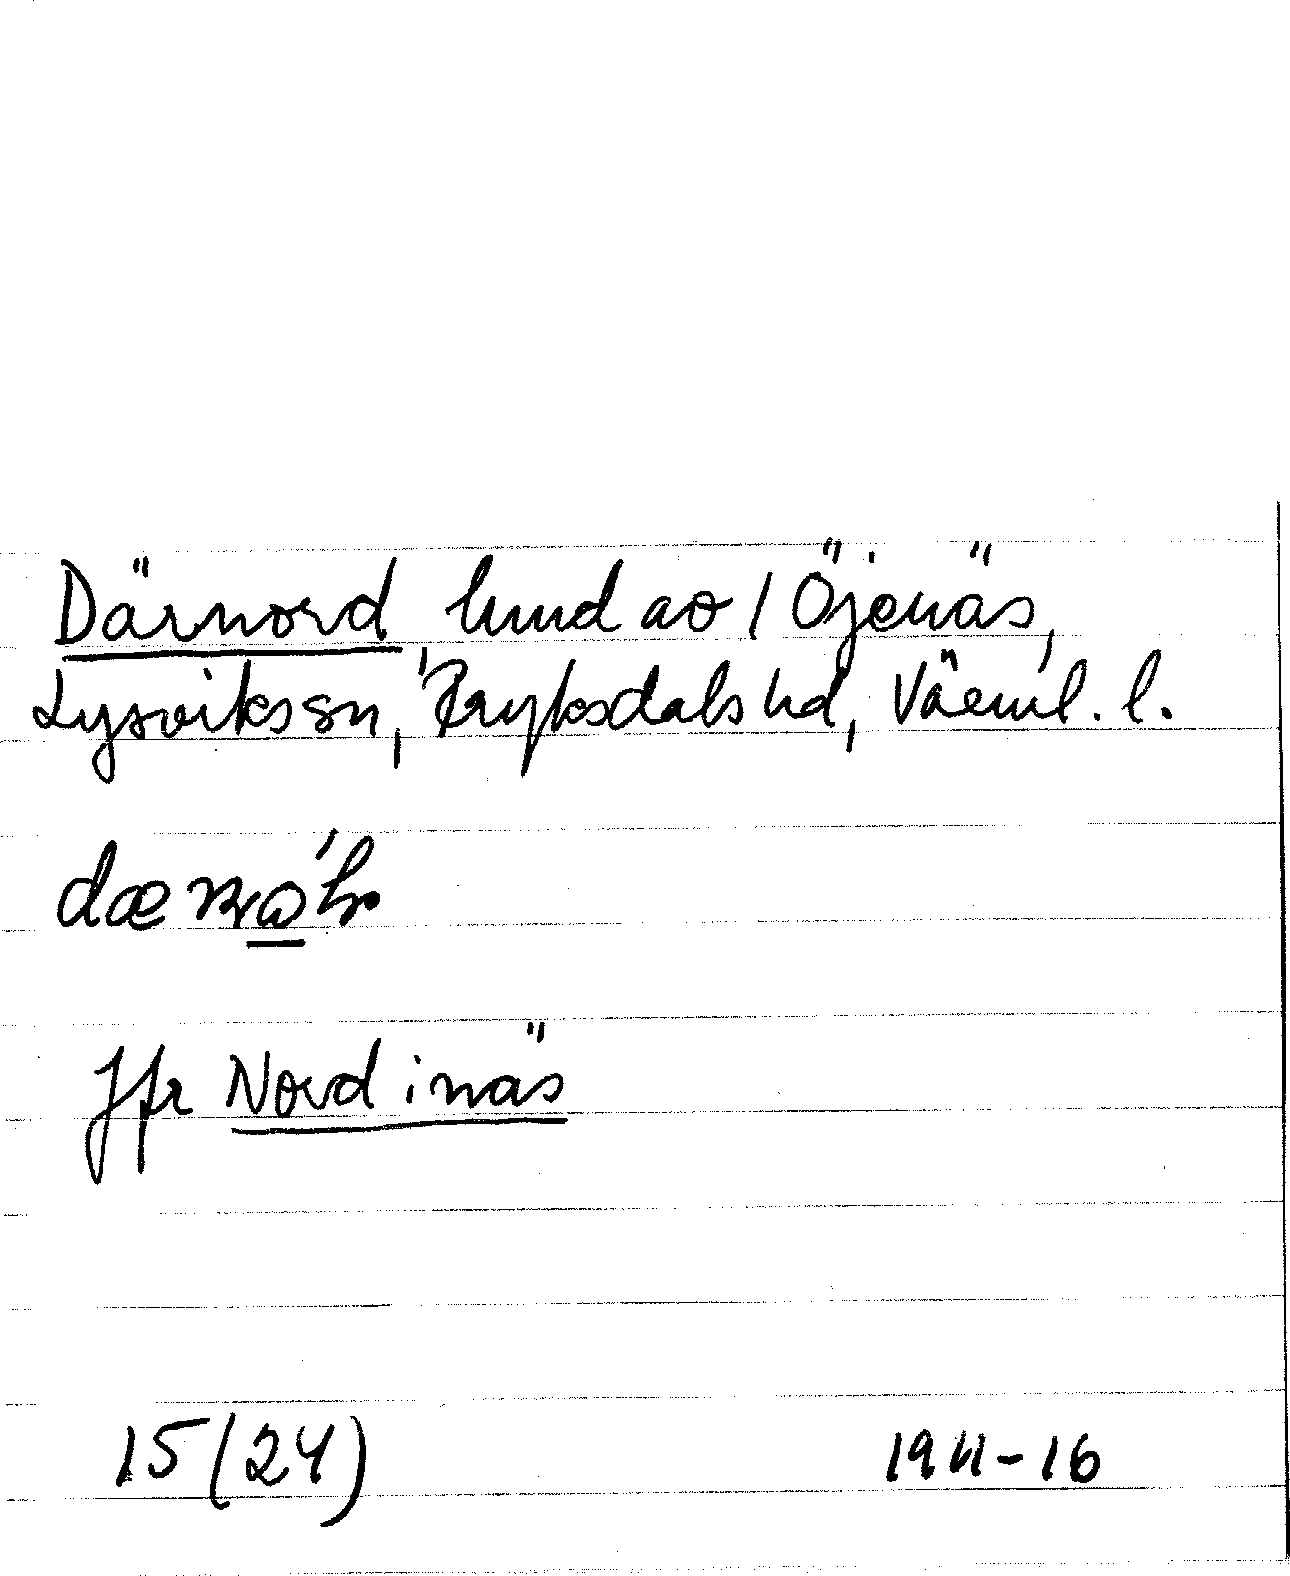 Därnord hmd av / Öjenäs,
Lysvikssn, Fryksdals hd, Värml. l.
Jfr Nord i näs
15 (24) 1911-16